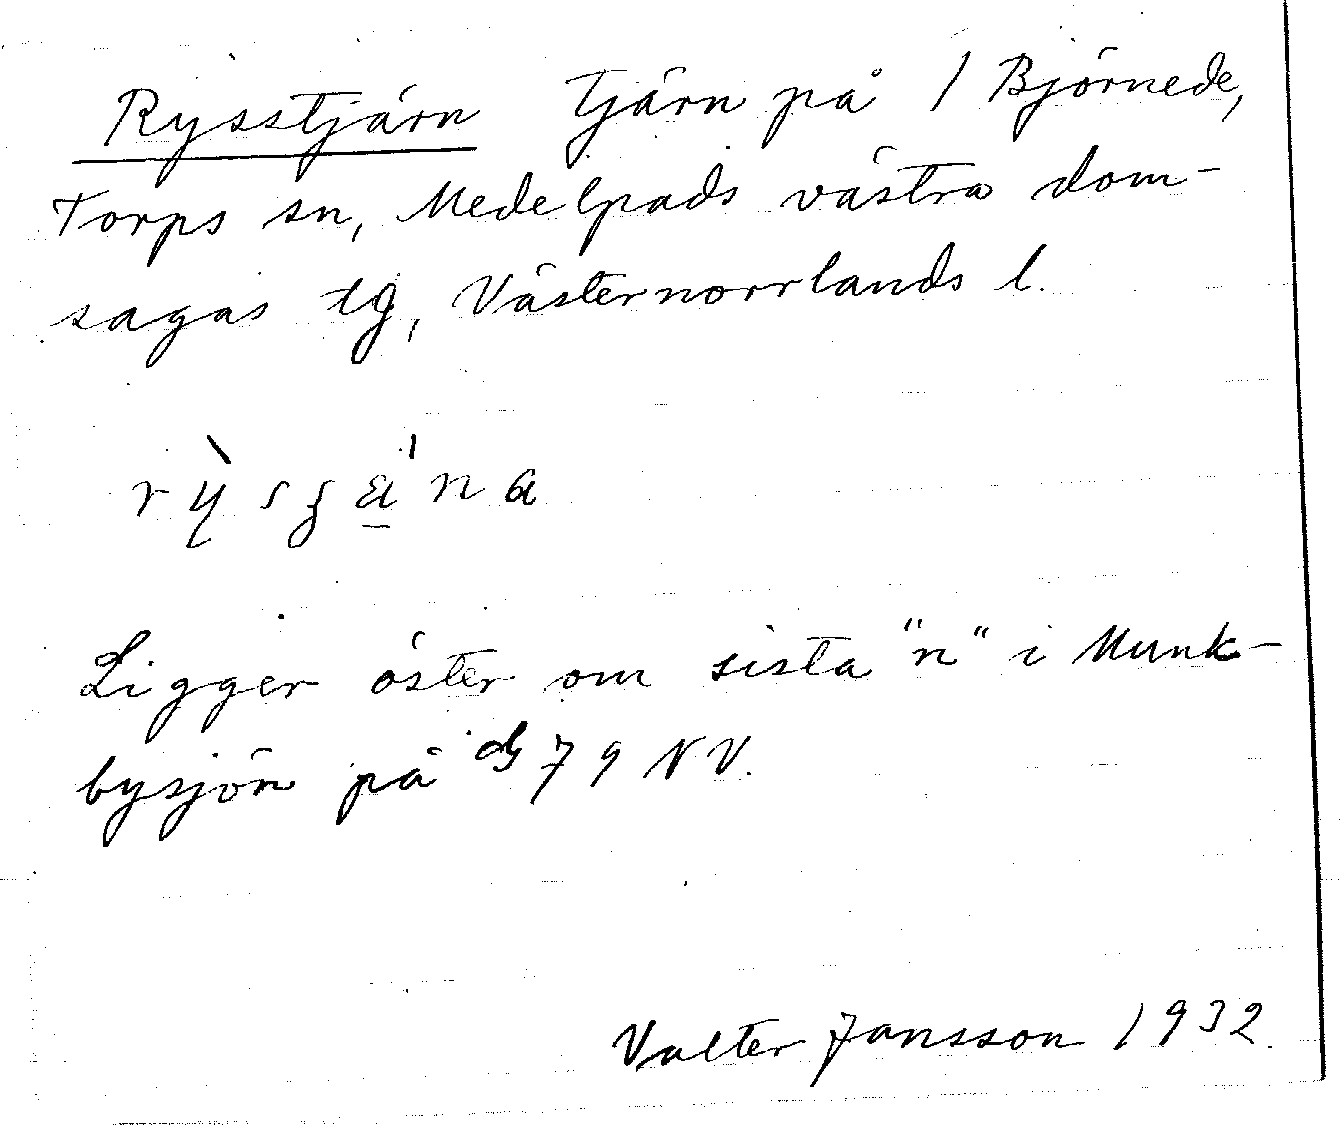 Rysstjärn Tjärn på 1 Björnede,
Torps sn, Medelpads västra dom-
sagas tg, Västernorrlands l.
Ligger öster om sista "n" i Munk-
bysjön på 79 NV.
Valter Jansson 1932.